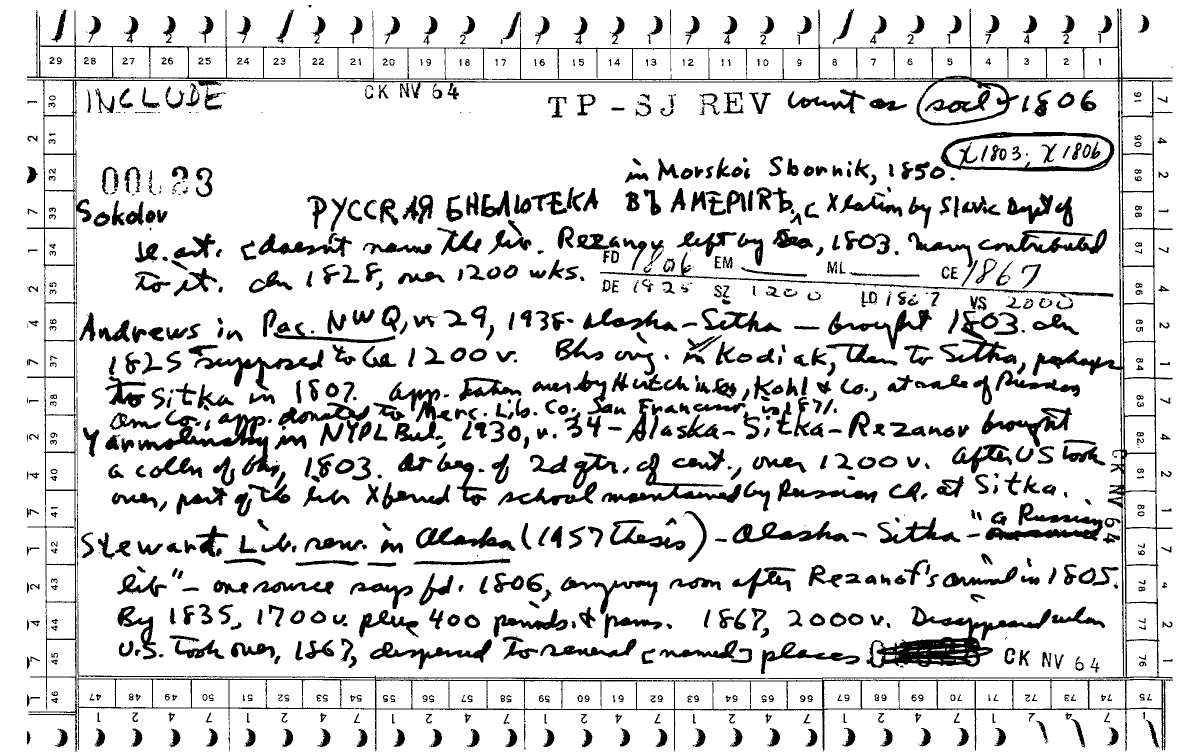 7 4 2 1 7 4 2 1 7 4 2 1 7 4 2 1 7 4 2 1 7 4 2 1 7 4 2 1
29 28 27 26 25 24 23 22 21 20 19 18 17 16 15 14 13 12 11 10 9 8 7 6 5 4 3 2 1
INCLUDE CK NV 64 TP-SJ REV count as socl - 1806
X1803; X1806
00023 in Morskoi Sbornik, 1850.
Sokolov РУССКАЯ БНБЛІОТЕКА ВЪ АМЕРИКѢ, c Xlation by Slavic Dept of
se. art. [doesn't name the lib. Rezanov left by sea, 1803. Many contributed
to it. cln 1828, over 1200 wks.
FD 1806 EM ML CE 1867
DE 1825 SZ 1200 LD 1867 VS 2000
Andrews in Pac. NWQ, v. 29, 1938 - Alaska-Sitka - brought 1803. cln
1825 supposed to be 1200 v. Bks orig. in Kodiak, then to Sitka, perhaps
to Sitka in 1807. App. taken over by Hutchinson, Kohl & Co., at sale of Russian
Am Co., app. donated to Merc. Lib. Co., San Francisco, in 1871.
Yarmolinsky in NYPL Bul., 1930, v. 34 - Alaska-Sitka-Rezanov brought
a colln of bks, 1803. At beg. of 2d qtr. of cent., over 1200 v. After US took
over, part of the libr Xferred to school maintained by Russian Ch. at Sitka.
Steward. Lib. serv. in Alaska (1957 thesis) - Alaska-Sitka - "a Russian
lib" - one source says fd. 1806, anyway soon after Rezanof's arrival in 1805.
By 1835, 1700 v. plus 400 periods. & pams. 1867, 2000 v. Disappeared when
U.S. took over, 1867, dispersed to several [named] places. CK NV 64
CK NV 64
30 31 32 33 34 35 36 37 38 39 40 41 42 43 44 45 46
91 90 89 88 87 86 85 84 83 82 81 80 79 78 77 76 75
47 48 49 50 51 52 53 54 55 56 57 58 59 60 61 62 63 64 65 66 67 68 69 70 71 72 73 74 75
1 2 4 7 1 2 4 7 1 2 4 7 1 2 4 7 1 2 4 7 1 2 4 7 1 2 4 7